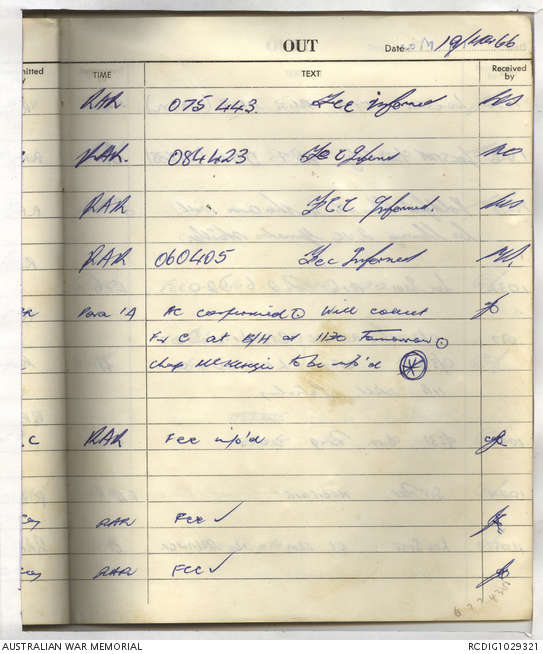 OUT Date 19/Nov 66
mitted by TIME TEXT Received by
RAR 075 443. Fcc informed
RAR. 084423 Fcc Informed
RAR F.C.C Informed.
RAR 060405 Fcc Informed
Para 1A AC confirmed Will collect
For C at B/H at 1130 Tomorrow
Chap McKenzie to be info'd
C RAR Fcc info'd
RAR FCC ✓
RAR FCC ✓
AUSTRALIAN WAR MEMORIAL RCDIG1029321